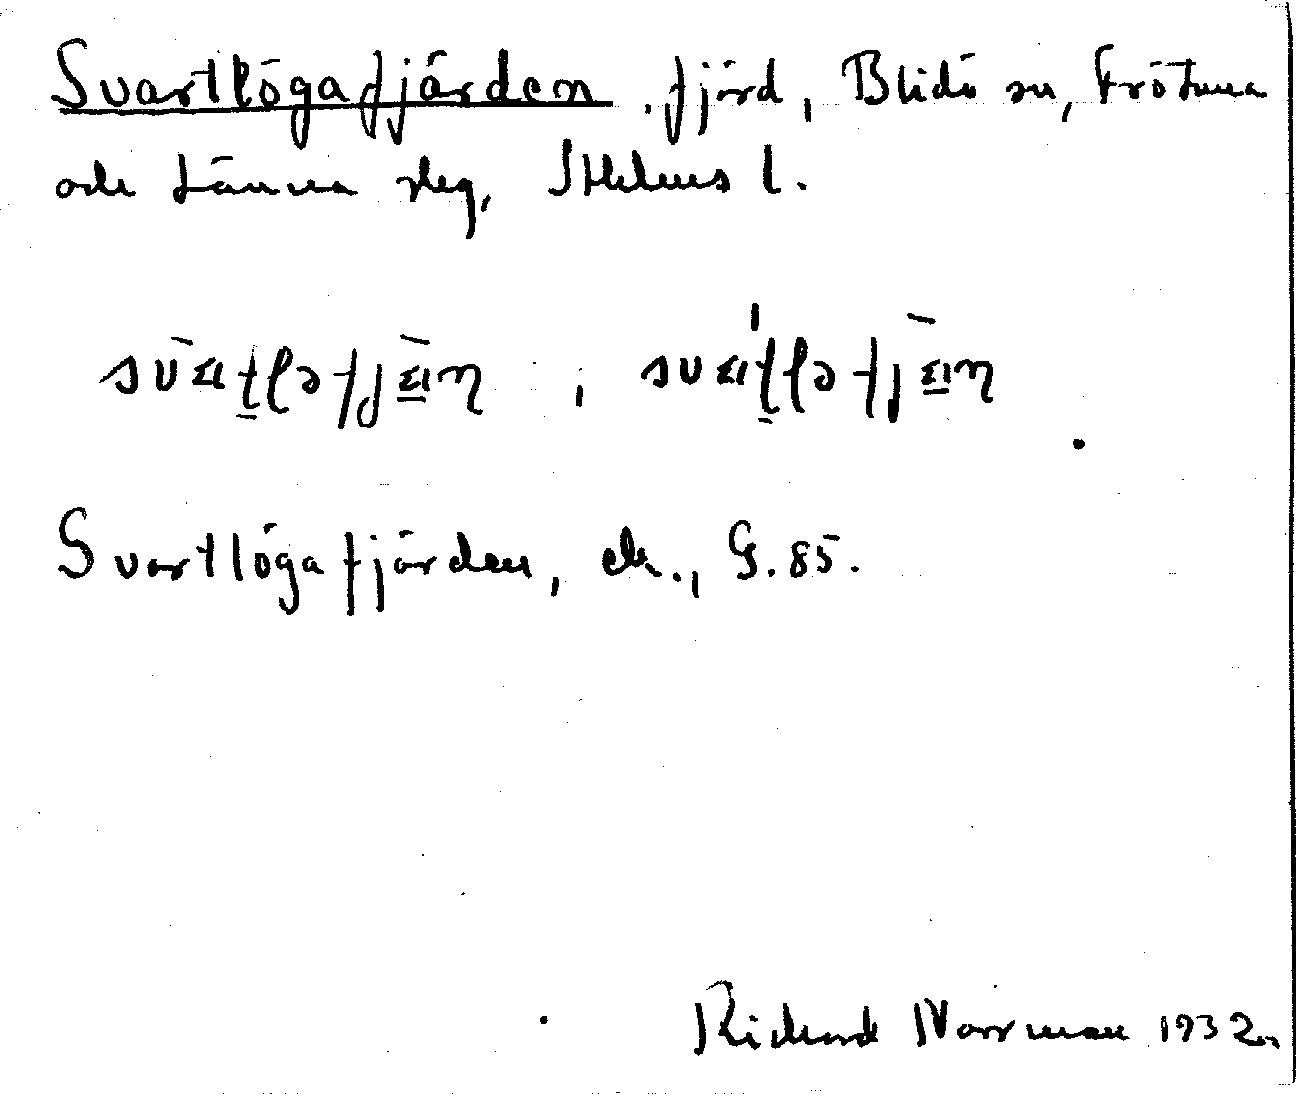 Svartlögafjärden, fjärd, Blidö sn, Frötuna
och Länna skg, Sthlms l.
Svartlögafjärden, ek., G. 85.
Richard Norrman 1932.